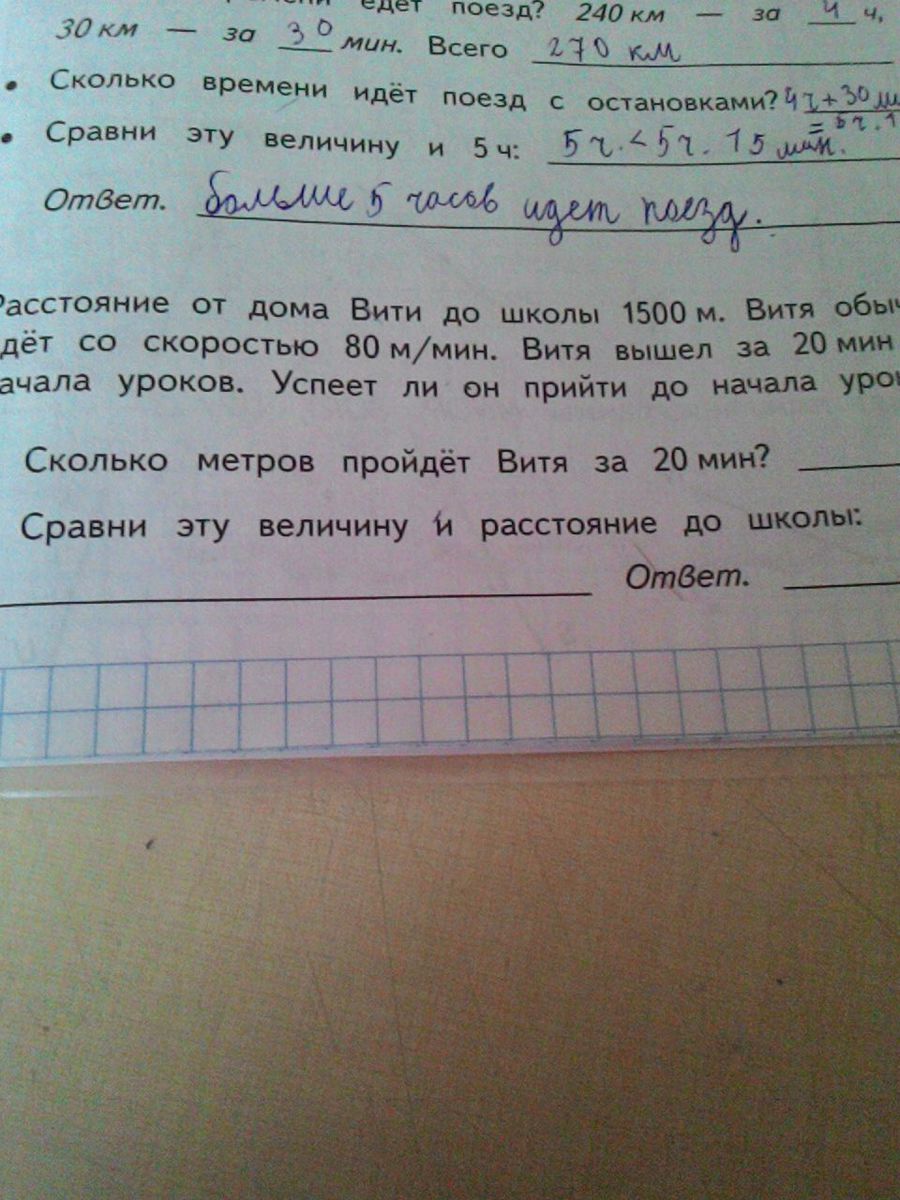 едет поезд? 240 км — за 4 ч,
30 км — за 30 мин. Всего 270 км
• Сколько времени идёт поезд с остановками? 4ч+30
= 5ч.1
• Сравни эту величину и 5 ч: 5 ч. < 5 ч. 15 мин.
Ответ. больше 5 часов идет поезд.
Расстояние от дома Вити до школы 1500 м. Витя обыч
дёт со скоростью 80 м/мин. Витя вышел за 20 мин
ачала уроков. Успеет ли он прийти до начала уро
Сколько метров пройдёт Витя за 20 мин?
Сравни эту величину и расстояние до школы:
Ответ.